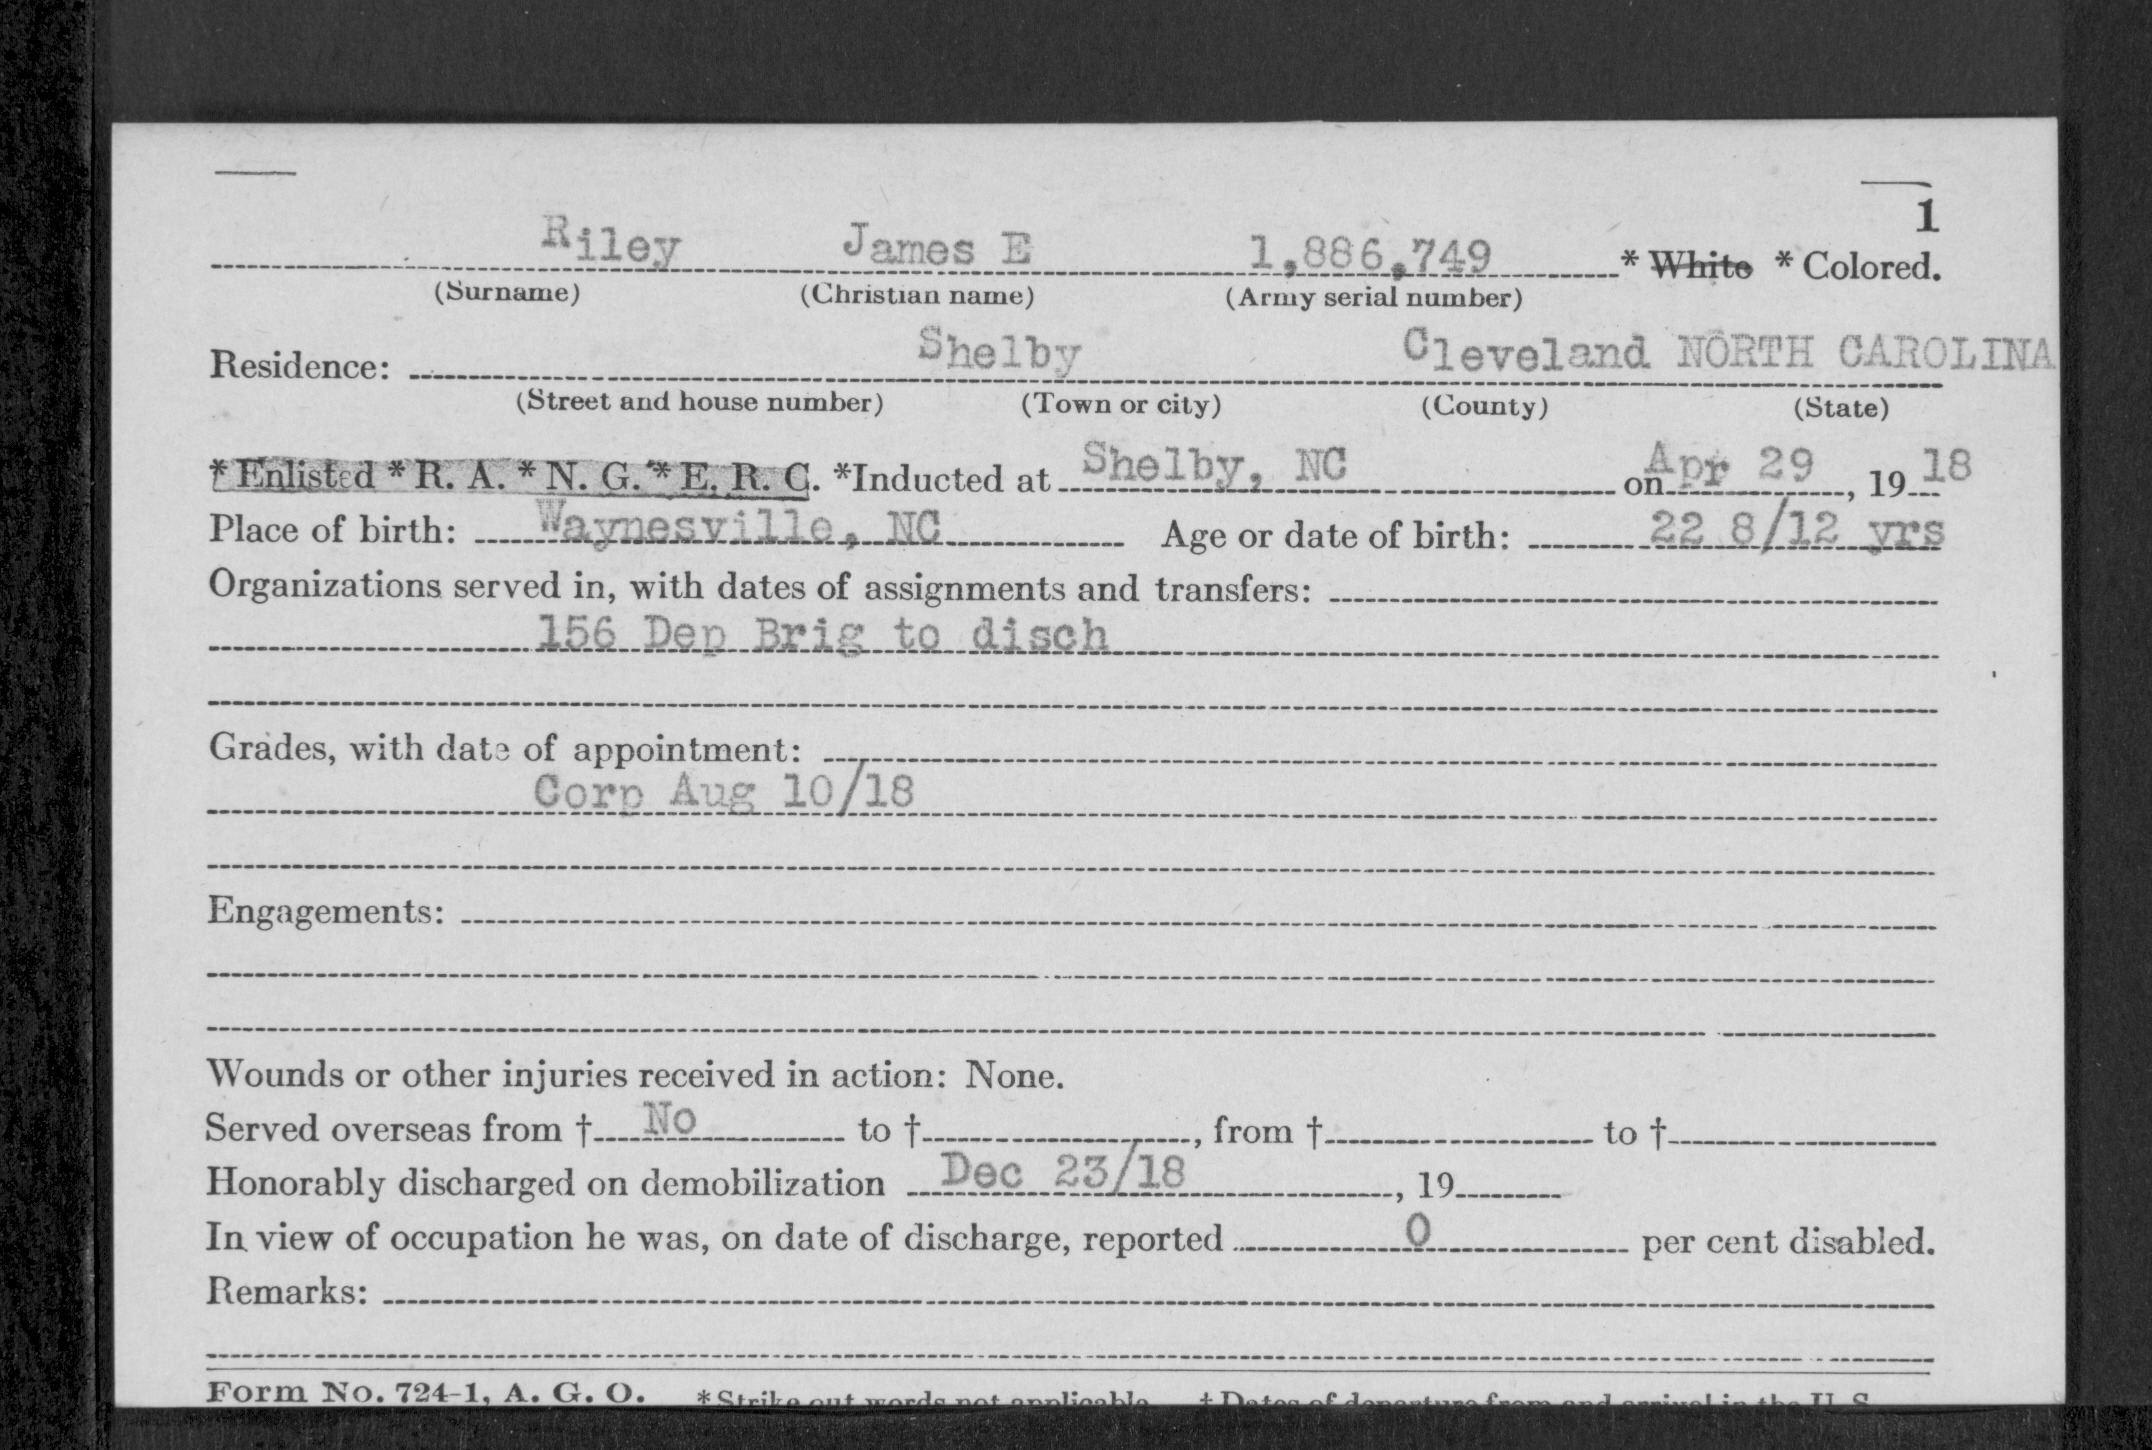 1
Riley James E 1,886,749 * White * Colored.
(Surname) (Christian name) (Army serial number)
Residence: Shelby Cleveland NORTH CAROLINA
(Street and house number) (Town or city) (County) (State)
* Enlisted * R. A. * N. G. * E. R. C. *Inducted at Shelby, NC on Apr 29, 19 18
Place of birth: Waynesville, NC Age or date of birth: 22 8/12 yrs
Organizations served in, with dates of assignments and transfers:
156 Dep Brig to disch
Grades, with date of appointment:
Corp Aug 10/18
Engagements:
Wounds or other injuries received in action: None.
Served overseas from † No to †, from † to †
Honorably discharged on demobilization Dec 23/18, 19
In view of occupation he was, on date of discharge, reported 0 per cent disabled.
Remarks:
Form No. 724-1, A. G. O. * Strike out words not applicable † Dates of departure from and arrival in the U S